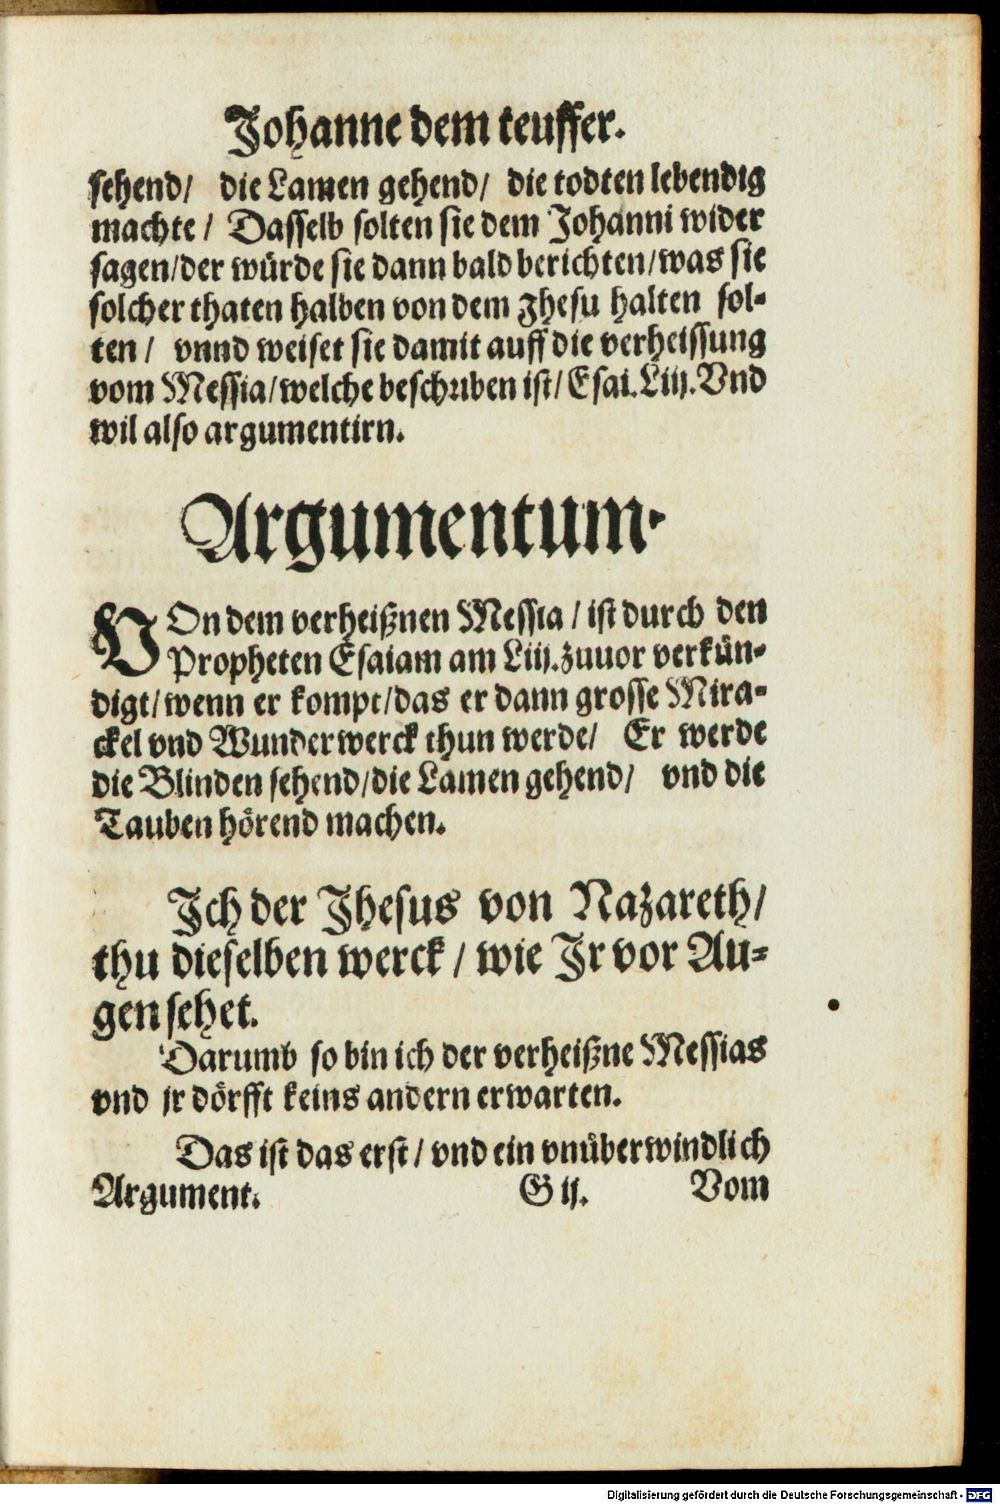 Johanne dem teuffer.
sehend/ die Lamen gehend/ die todten lebendig
machte/ Dasselb solten sie dem Johanni wider
sagen/der würde sie dann bald berichten/was sie
solcher thaten halben von dem Jhesu halten sol-
ten/ vnnd weiset sie damit auff die verheissung
vom Messia/welche beschriben ist/Esai.Liij.Vnd
wil also argumentirn.
Argumentum.
VOn dem verheißnen Messia/ist durch den
Propheten Esaiam am Liij.zuuor verkün-
digt/wenn er kompt/das er dann grosse Mira-
ckel vnd Wunderwerck thun werde/ Er werde
die Blinden sehend/die Lamen gehend/ vnd die
Tauben hörend machen.
Ich der Jhesus von Nazareth/
thu dieselben werck/wie Ir vor Au-
gen sehet.
Darumb so bin ich der verheißne Messias
vnd jr dörfft keins andern erwarten.
Das ist das erst/vnd ein vnüberwindlich
Argument. G ij. Vom
Digitalisierung gefördert durch die Deutsche Forschungsgemeinschaft - DFG